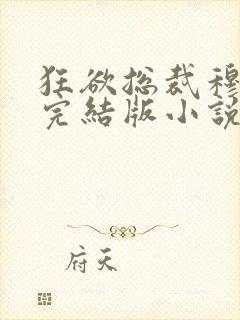 狂欲總裁穆
完結版小說
府天